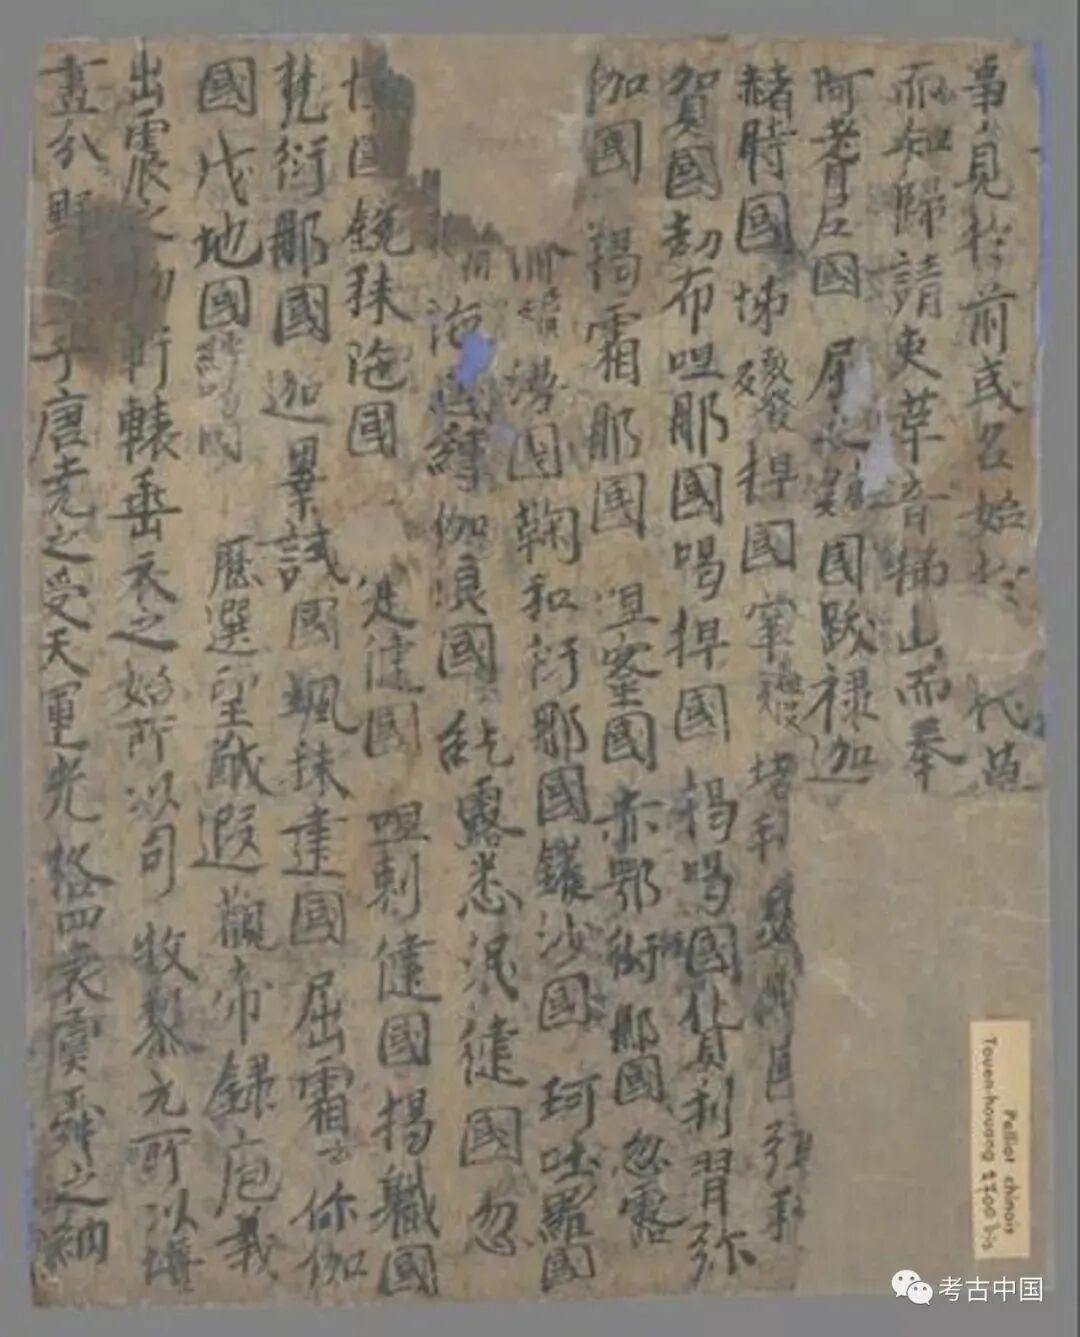 事見於前或名始於 代
而知歸請吏革音梯山而奉
阿耆尼國 屈 國跋禄迦
赭時國怖 捍國窣 堵利
賀國劫布呾那國喝捍國 國貨利習弥
伽國 羯霜那國 呾蜜國赤鄂衍那國忽露
國鞠和衍那國鑊沙國 珂咄羅國
國縛伽浪國紇露悉泯健國 忽
國銳秣陁國 健國 呾剌健國揭職國
梵衍那國迦畢試國颯秣建國屈霜你伽
國伐地國 歷選皇猷遐觀帝録庖羲
出震之初軒轅垂衣之始所以司牧黎元所以壃
畫分野 于唐堯之受天運光格四表虞舜之納
Pelliot chinois
Touen-houang 2700 bis
考古中国